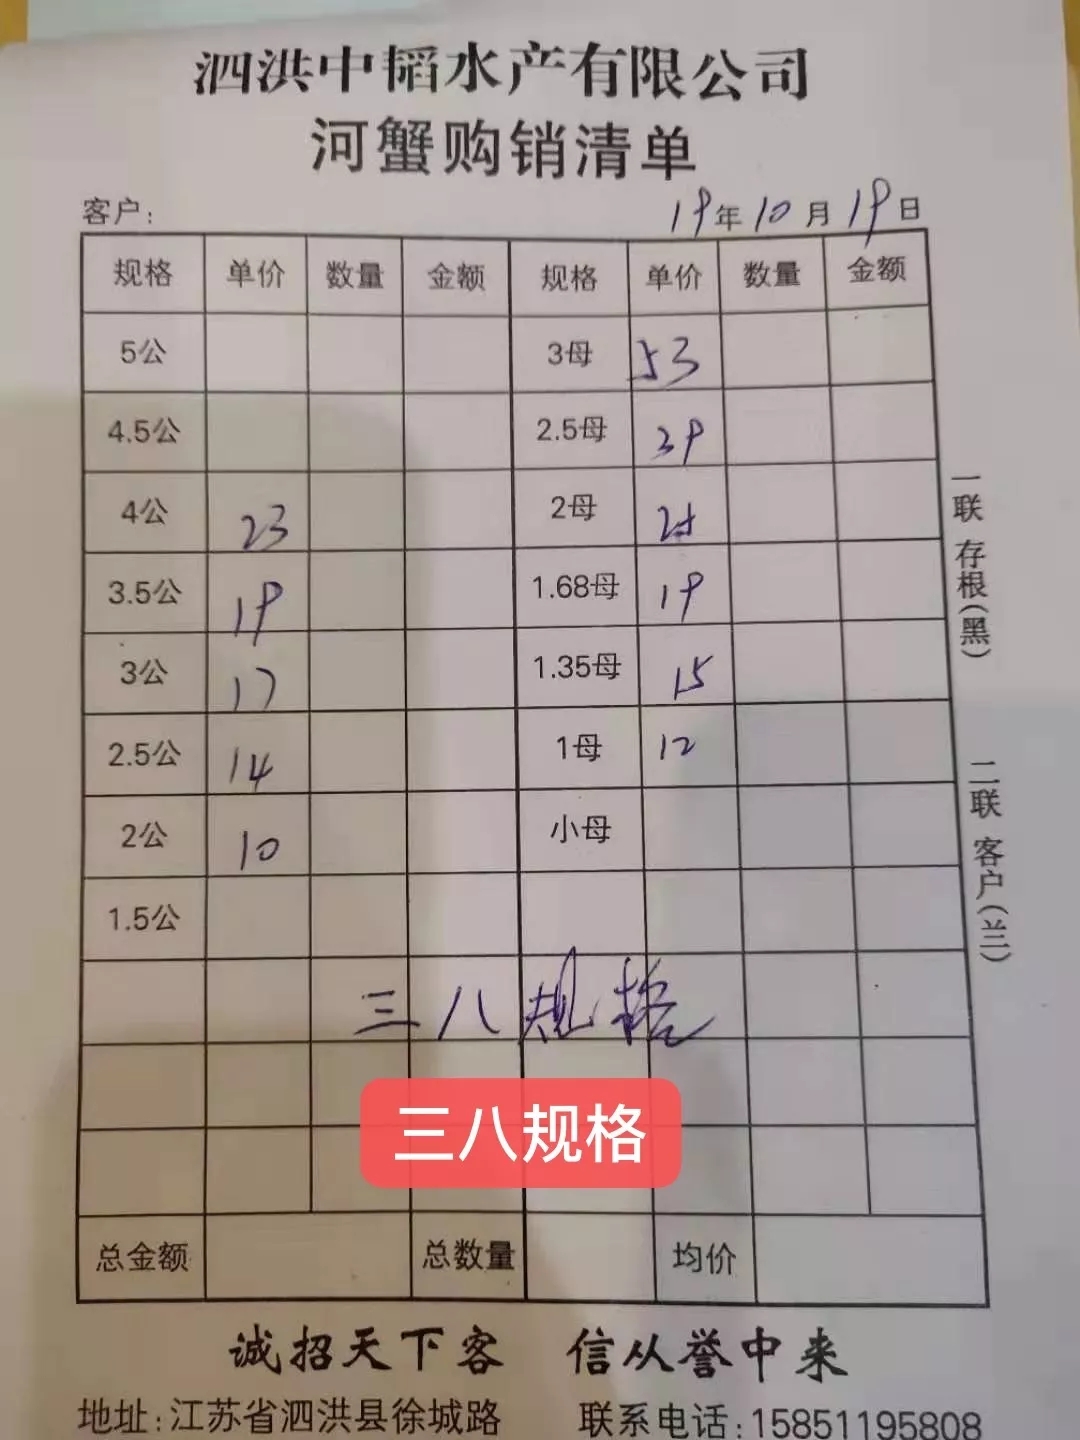 泗洪中韬水产有限公司
河蟹购销清单
客户: 19年10月19日
规格 单价 数量 金额 规格 单价 数量 金额
5公 3母 53
4.5公 2.5母 39
4公 23 2母 25
3.5公 19 1.68母 19
3公 17 1.35母 15
2.5公 14 1母 12
2公 10 小母
1.5公
三八规格
三八规格
总金额 总数量 均价
一联 存根(黑)
二联 客户(兰)
诚招天下客 信从誉中来
地址:江苏省泗洪县徐城路 联系电话:15851195808